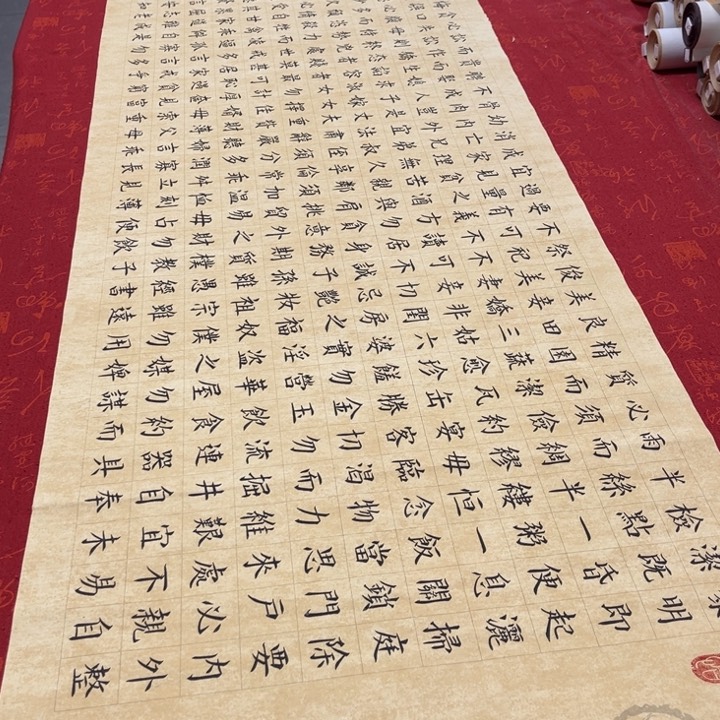 黎明即起灑掃庭除要內外整
潔既昏便息關鎖門戶必親自
檢點一粥一飯當思來處不易
半絲半縷恒念物力維艱宜未
雨而綢繆毋臨渴而掘井自奉
必須儉約宴客切勿流連器具
質而潔瓦缶勝金玉飲食約而
精園蔬愈珍饈勿營華屋勿謀
良田三姑六婆實淫盜之媒婢
美妾嬌非閨房之福奴僕勿用
俊美妻妾切忌艷妝祖宗雖遠
祭祀不可不誠子孫雖愚經書
不可不讀居身務期質樸教子
要有義方勿貪意外之財勿飲
過量之酒與肩挑貿易毋占便
宜見貧苦親鄰須加溫恤刻薄
成家理無久享倫常乖舛立見
消亡兄弟叔侄須分多潤寡長
幼內外宜法肅辭嚴聽婦言乖
骨肉豈是丈夫重資財薄父母
不成人子嫁女擇佳婿毋索重
聘娶媳求淑女勿計厚奩見富
貴而生諂容者最可恥遇貧窮
而作驕態者賤莫甚居家戒爭
訟訟則終凶處世戒多言言多